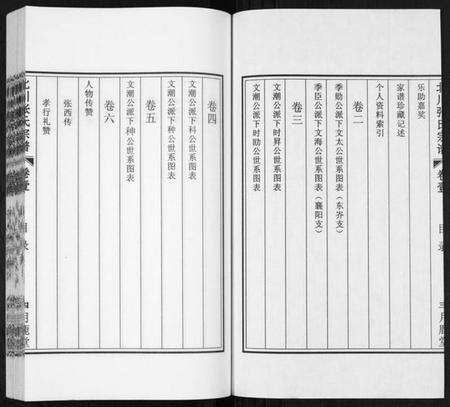 北川张氏宗谱
卷壹
目录
三
月鹿堂
乐助嘉奖
家谱珍藏记述
个人资料索引
卷二
季助公派下文太公世系图表（东夼支）
季臣公派下文海公世系图表（襄阳支）
卷三
文潮公派下时昇公世系图表
文潮公派下时励公世系图表
卷四
文潮公派下科公世系图表
文潮公派下种公世系图表
卷五
文潮公派下种公世系图表
卷六
人物传赞
张西传
孝行礼赞
北川张氏宗谱
卷壹
目录
四
月鹿堂